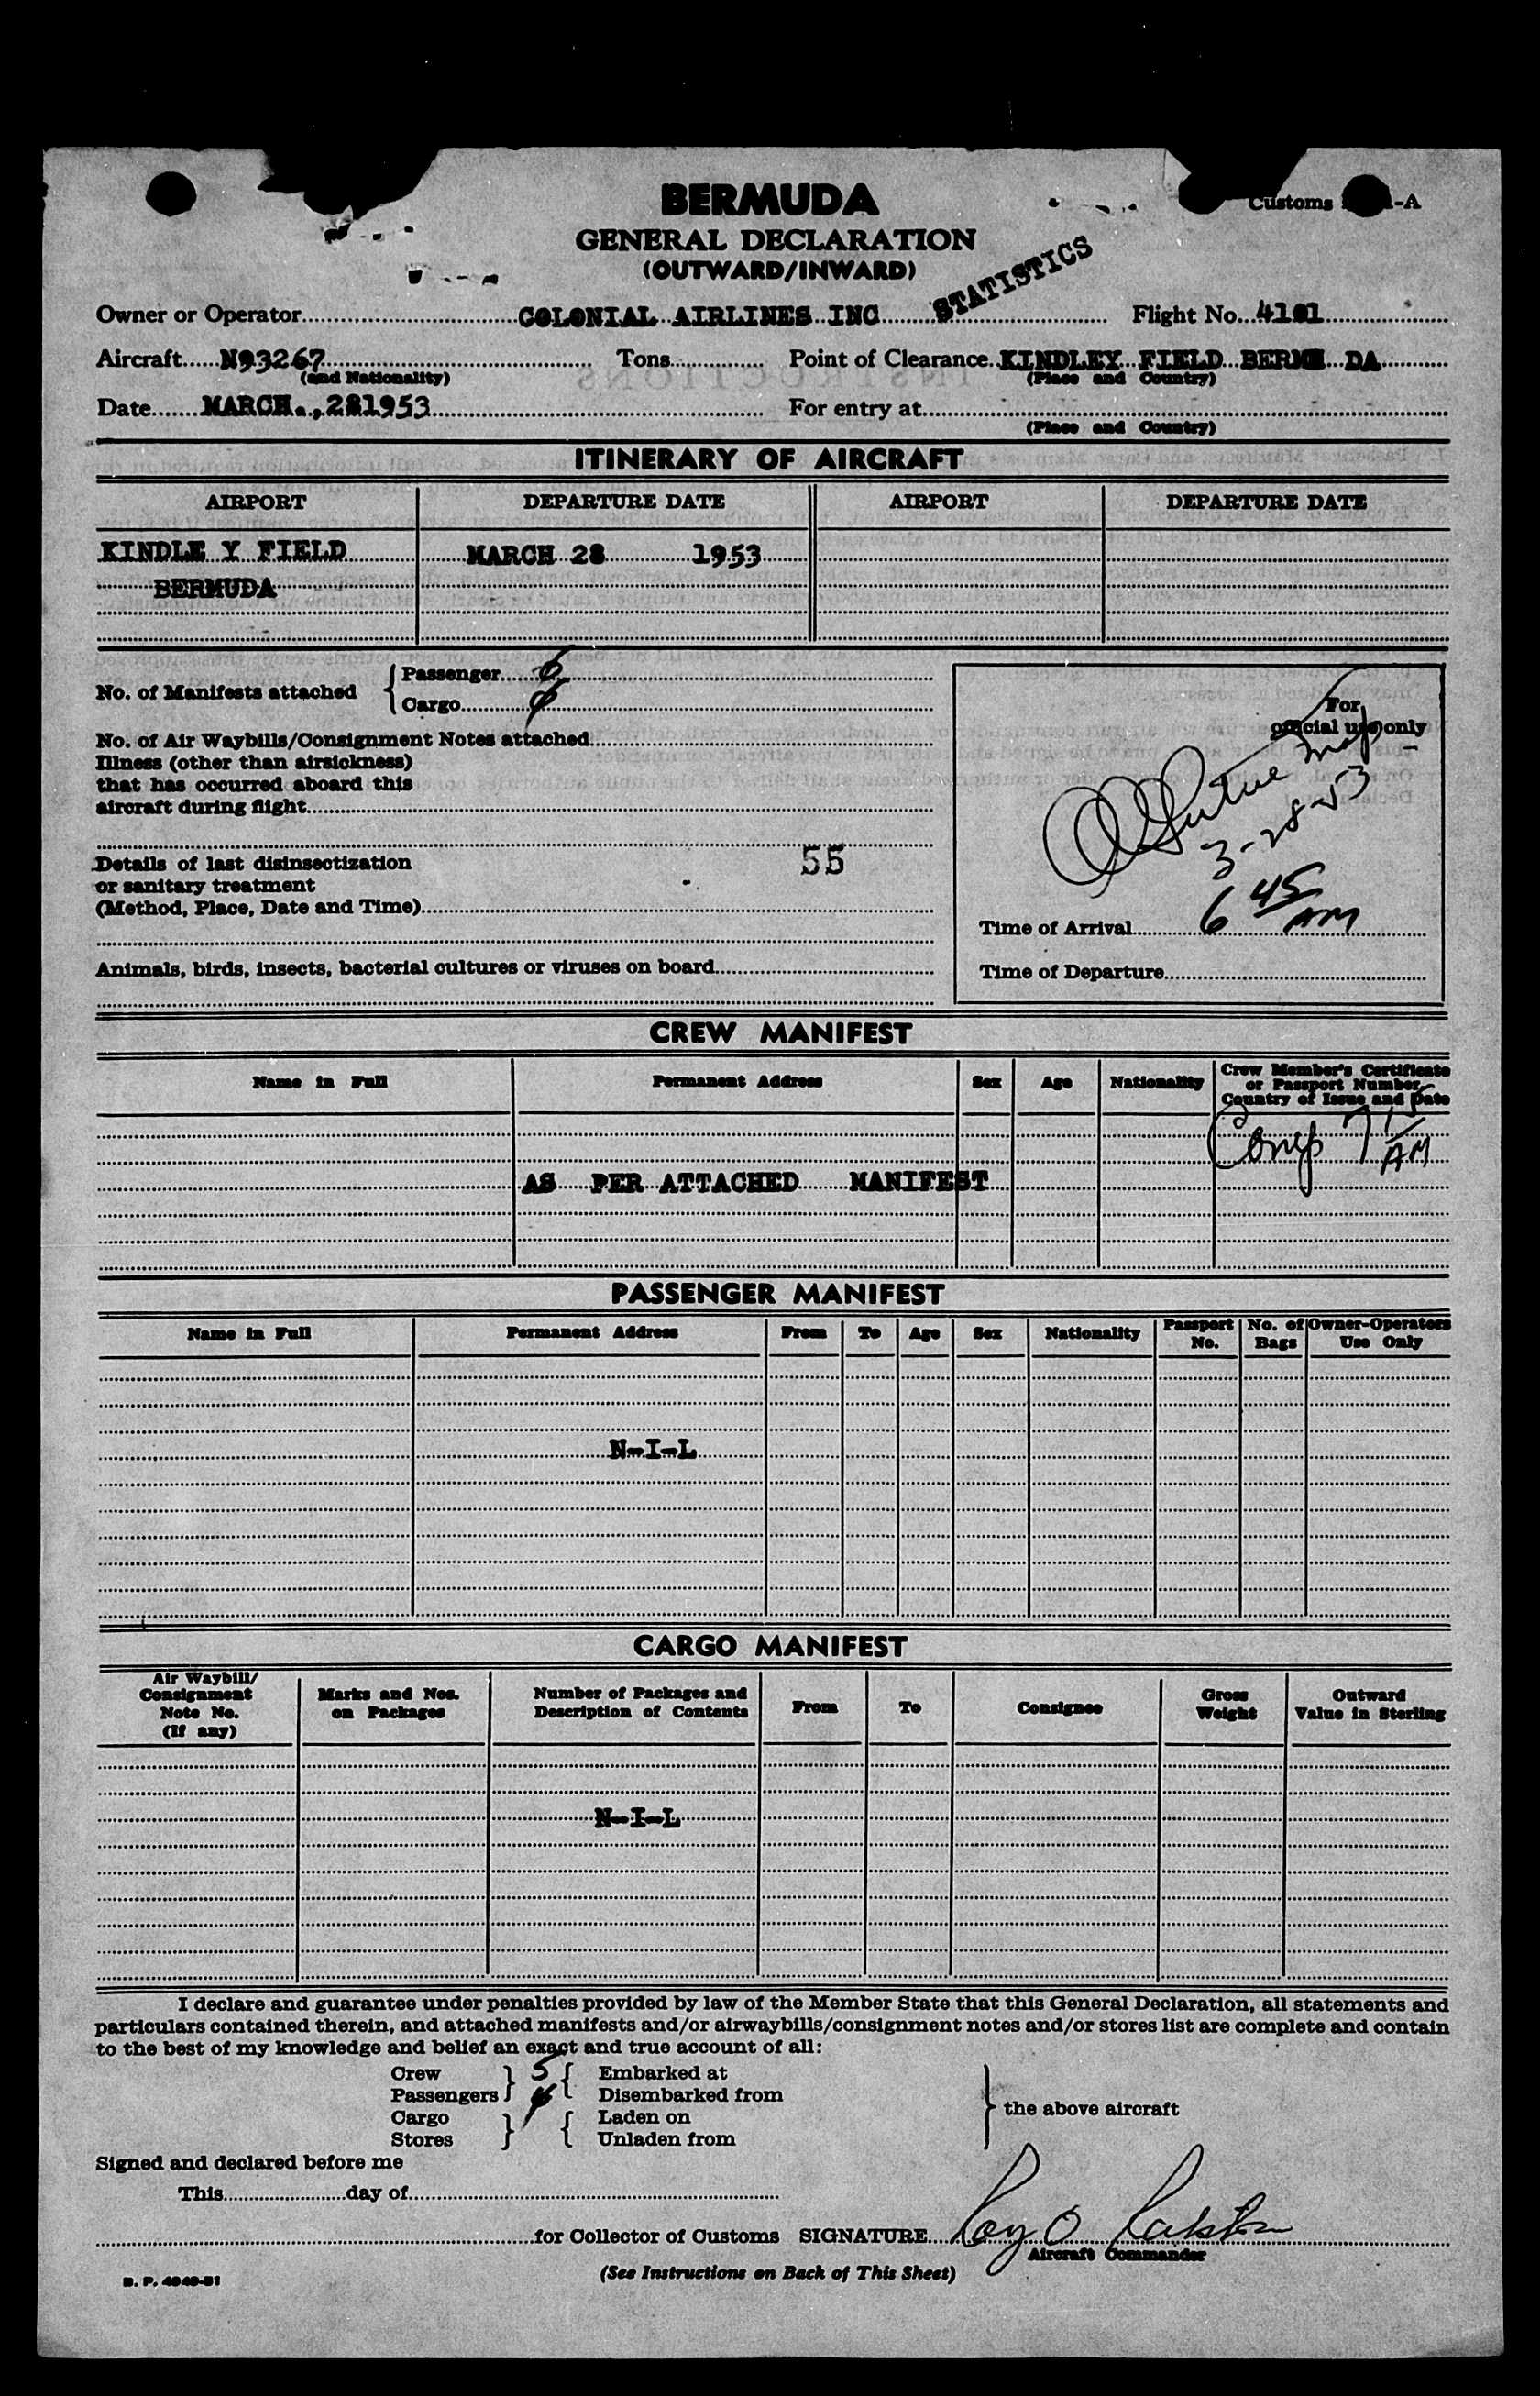 BERMUDA
Customs -A
GENERAL DECLARATION
(OUTWARD/INWARD)
STATISTICS
Owner or Operator COLONIAL AIRLINES INC Flight No. 4101
Aircraft N93267 Tons Point of Clearance KINDLEY FIELD BERMU DA
(and Nationality) (Place and Country)
Date MARCH.,281953 For entry at
(Place and Country)
ITINERARY OF AIRCRAFT
AIRPORT DEPARTURE DATE AIRPORT DEPARTURE DATE
KINDLE Y FIELD MARCH 28 1953
BERMUDA
No. of Manifests attached { Passenger
Cargo
No. of Air Waybills/Consignment Notes attached
Illness (other than airsickness)
that has occurred aboard this
aircraft during flight
Details of last disinsectization
or sanitary treatment
(Method, Place, Date and Time)
55
Animals, birds, insects, bacterial cultures or viruses on board
For
official use only
3-28-53
Time of Arrival 6 45 AM
Time of Departure
CREW MANIFEST
Name in Full Permanent Address Sex Age Nationality Crew Member's Certificate
or Passport Number
Country of Issue and Date
Comp 7 15 AM
AS PER ATTACHED MANIFEST
PASSENGER MANIFEST
Name in Full Permanent Address From To Age Sex Nationality Passport No. No. of Bags Owner-Operators Use Only
N-I-L
CARGO MANIFEST
Air Waybill/ Consignment Note No. (If any) Marks and Nos. on Packages Number of Packages and Description of Contents From To Consignee Gross Weight Outward Value in Sterling
N-I-L
I declare and guarantee under penalties provided by law of the Member State that this General Declaration, all statements and
particulars contained therein, and attached manifests and/or airwaybills/consignment notes and/or stores list are complete and contain
to the best of my knowledge and belief an exact and true account of all:
Crew } 5 { Embarked at
Passengers Disembarked from
Cargo } { Laden on } the above aircraft
Stores Unladen from
Signed and declared before me
This day of
for Collector of Customs SIGNATURE Roy O Ralston
Aircraft Commander
(See Instructions on Back of This Sheet)
B. P. 4940-51